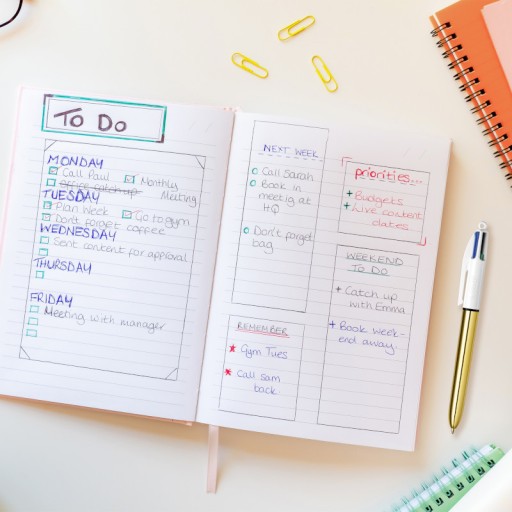 To Do
MONDAY
Call Paul
Monthly
Meeting
Office catch up
TUESDAY
Plan week
Go to gym
Don't forget coffee
WEDNESDAY
Sent content for approval
THURSDAY
FRIDAY
Meeting with manager
NEXT WEEK
Call Sarah
Book in
meetig at
HQ
Don't forget
bag
REMEMBER
Gym Tues
Call sam
back
priorities...
Budgets
Live content
dates
WEEKEND
TO DO
Catch up
with Emma
Book week-
end away